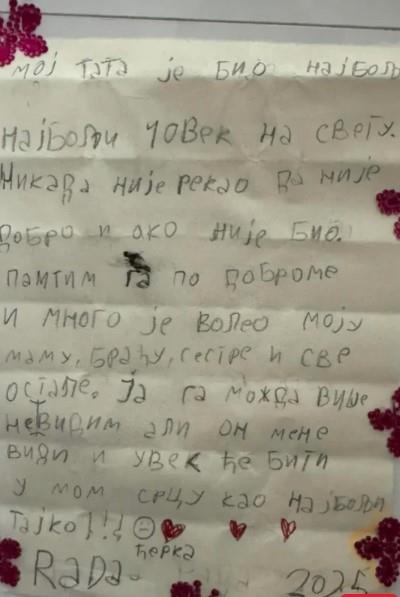 мој тата је био најбољ
најбољи човек на свету.
Никада није рекао да није
добро и ако није био.
памтим га по доброме
и много је волео моју
маму, браћу, сестре и све
остале. Ја га можда више
невидим али он мене
види и увек ће бити
у мом срцу као најбољи
тајко!!!
ћерка
RaDa
2025